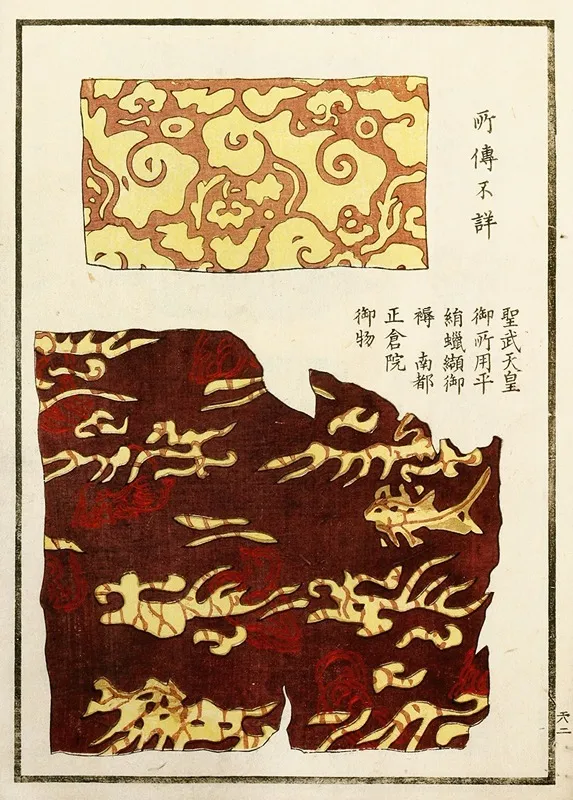 所傳不詳
聖武天皇
御所用平
絹蠟纈御
褥 南都
正倉院
御物
六二